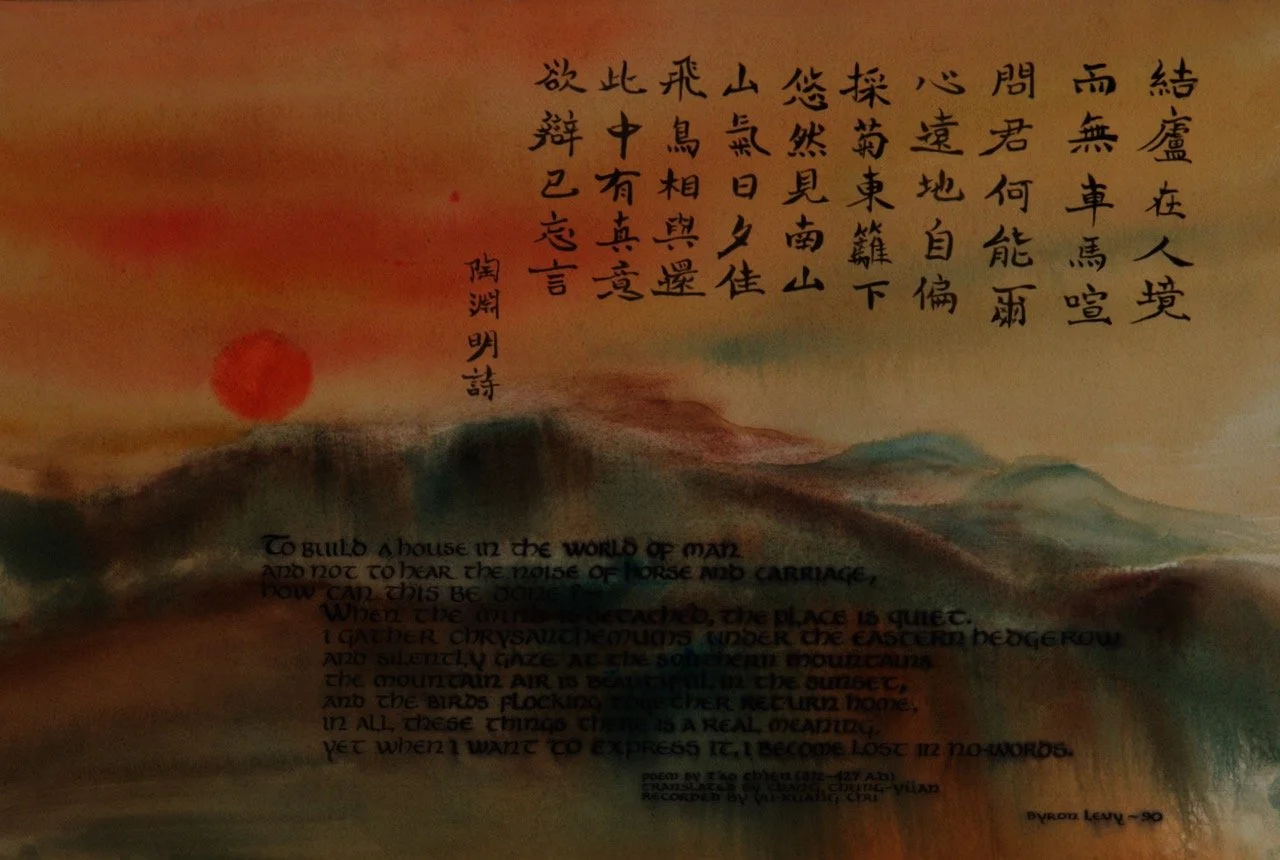 結廬在人境
而無車馬喧
問君何能爾
心遠地自偏
採菊東籬下
悠然見南山
山氣日夕佳
飛鳥相與還
此中有真意
欲辯已忘言
陶淵明詩
To build a house in the world of man
and not to hear the noise of horse and carriage,
how can this be done?—
When the mind is detached, the place is quiet.
I gather chrysanthemums under the eastern hedgerow
and silently gaze at the southern mountains.
the mountain air is beautiful in the sunset,
and the birds flocking together return home,
in all these things there is a real meaning,
yet when I want to express it, I become lost in no-words.
Poem by T'ao Ch'ien (372–427 A.D.)
Translated by Chang Chung-yüan
Recorded by Yu-Kuang Chu
Byron Levy ~ 90